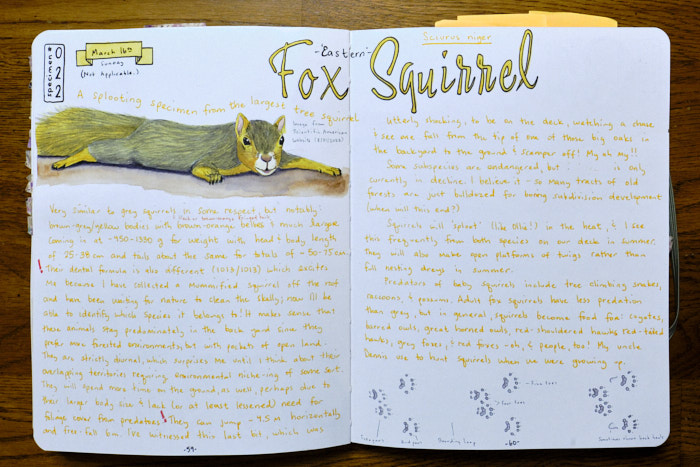 Specimen #
022
March 16th
Sunday
(Not Applicable.)
-Eastern-
Fox Squirrel
Sciurus niger
A splooting specimen from the largest tree squirrel
Image from
Scientific American
website
Very similar to gray squirrels in some respect, but notably:
black or brown-orange fringed tails
brown-grey/yellow bodies with brown-orange bellies & much larger
coming in at ~450-1350 g for weight with head & body length
of 25-38 cm and tails about the same for totals of ~50-75 cm.
! Their dental formula is also different (1013/1013) which excites
me because I have collected a mummified squirrel off the roof
and have been waiting for nature to clean the skull; now I'll be
able to identify which species it belongs to! It makes sense that
these animals stay predominately in the back yard since they
prefer more forested environments, but with pockets of open land.
They are strictly diurnal, which surprises me until I think about their
overlapping territories requiring environmental niche-ing of some sort.
They will spend more time on the ground, as well, perhaps due to
their larger body size & lack (or at least lessened) need for
foliage cover from predators. ! They can jump ~4.5 m horizontally
and free-fall 6m. I've witnessed this last bit, which was
-59-
Utterly shocking, to be on the deck, watching a chase
& see one fall from the tip of one of those big oaks in
the backyard to the ground & scamper off! My oh my!!
Some subspecies are endangered, but is only
currently in decline. I believe it - so many tracts of old
forests are just bulldozed for boring subdivision development
(when will this end?)
Squirrels will 'sploot' (like Ollie!) in the heat, & I see
this frequently from both species on our deck in summer.
They will also make open platforms of twigs rather than
full nesting dreys in summer.
Predators of baby squirrels include tree climbing snakes,
raccoons, & possums. Adult fox squirrels have less predation
than grey, but in general, squirrels become food for: coyotes,
barred owls, great horned owls, red-shouldered hawks, red-tailed
hawks, gray foxes, & red foxes - oh, & people, too! My uncle
Dennis use to hunt squirrels when we were growing up.
Five toes
Four toes
Bounding Lump
-60-
Sometimes shows back heels